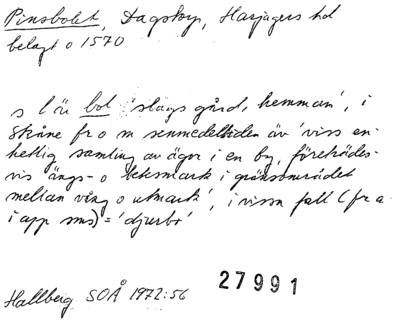 Pinsbolet, Dagstorp, Harjagers hd
belagt o 1570
s l är bol 'slags gård, hemman', i
Skåne fr o m senmedeltiden äv 'viss en-
hetlig samling av ägor i en by, företrädes-
vis ängs- o betesmark i gränsområdet
mellan vång o utmark', i vissa fall (fr a
i app sms) = 'djurbo'
Hallberg SOÅ 1972:56
27991